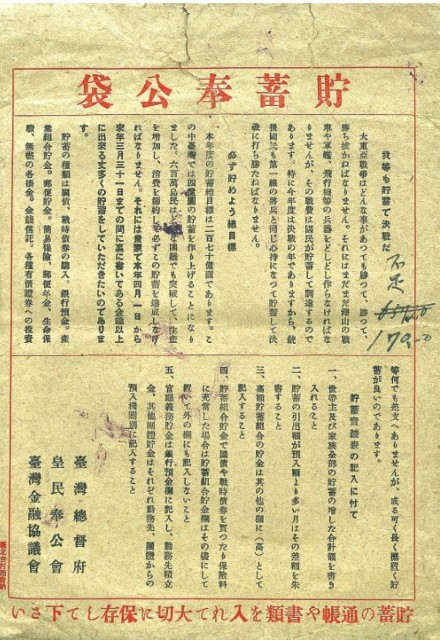 貯蓄奉公袋
我等も貯蓄で決戰だ
大東亞戰爭はどんな事があつても勝つて、勝つて、
勝ち拔かねばなりません。それにはまだまだ澤山の戰
車や軍艦、飛行機等の兵器をどしどし作らなければな
りませんが、その戰費は國民が貯蓄して調達するので
あります。特に今年度は決戰の年でありますから、銃
後國民も第一線の將兵と同じ心持になつて貯蓄して決
戰に打ち勝たねばなりません。
必ず貯めよう總目標
本年度の貯蓄總目標は二百七十億圓であります。こ
の中臺灣では四億圓の貯蓄を作り上げることになり
ました。六百萬島民はどんな困難でも突破して、生産
を増加し、消費を節約して必ずこの貯蓄を達成しなけ
ればなりません。それには貴家で本年四月一日から
來年三月三十一日までの間に裏に書いてある金額以上
に出來る丈多くの貯蓄をしていただきたいのでありま
す。
貯蓄の種類は國債、戰時債券の購入、銀行預金。産
業組合貯金。郵便貯金。簡易保險、郵便年金、生命保
險、無盡の各掛金。金錢信託。各種有價證券への投資
等何でも差支へありませんが、成る可く長く据置く貯
蓄が良いのであります。
貯蓄實踐表の記入に付て
一、世帶主及び家族全部の貯蓄の增した合計額を書き
入れること
二、貯蓄の引出額が預入額より多い月はその差額を朱
書すること
三、高額貯蓄組合の貯金は其の他の欄に(高)として
記入すること
四、貯蓄組合貯金で國債や戰時債券を買つたり保險料
に充當した場合は貯蓄組合貯金欄はその儘にして
置いて外の欄にも記入しないこと
五、官廳義務貯金は銀行預金欄に記入し、勤務先積立
金、其他團體貯金はそれぞれ勤務先、團體からの
預入機關別に記入すること
臺灣總督府
皇民奉公會
臺灣金融協議會
貯蓄の通帳や書類を入れて大切に保存して下さい
170.00